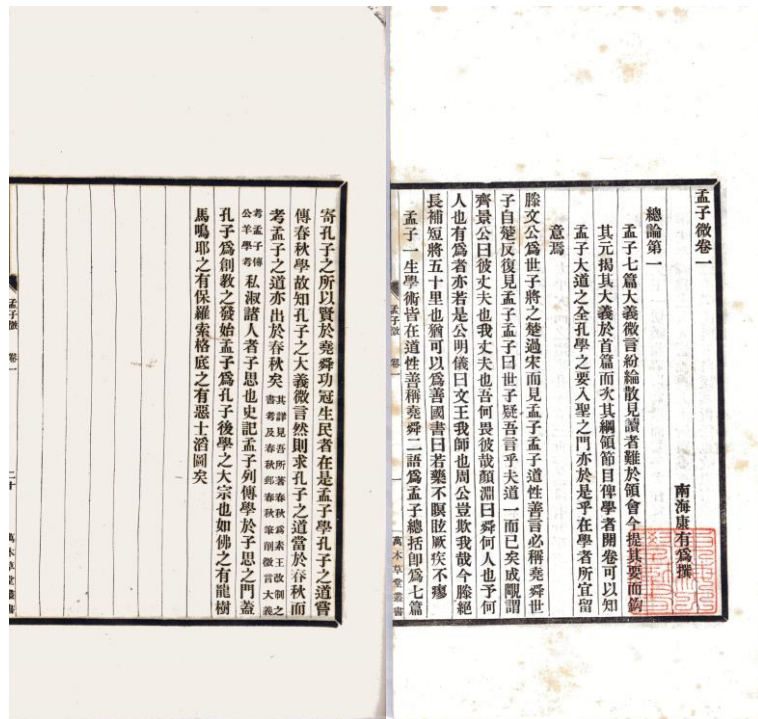 孟子微卷一
南海康有爲撰
總論第一
孟子七篇大義微言紛綸散見讀者難於領會今提其要而鉤
其元揭其大義於首篇而次其綱領節目俾學者開卷可以知
孟子大道之全孔學之要入聖之門亦於是乎在學者所宜留
意焉
滕文公爲世子將之楚過宋而見孟子孟子道性善言必稱堯舜世
子自楚反復見孟子孟子曰世子疑吾言乎夫道一而已矣成覸謂
齊景公曰彼丈夫也我丈夫也吾何畏彼哉顏淵曰舜何人也予何
人也有爲者亦若是公明儀曰文王我師也周公豈欺我哉今滕絕
長補短將五十里也猶可以爲善國書曰若藥不瞑眩厥疾不瘳
孟子一生學術皆在道性善稱堯舜二語爲孟子總括卽爲七篇
孟子微 卷一 一 萬木草堂叢書
寄孔子之所以賢於堯舜功冠生民者在是孟子學孔子之道嘗
傳春秋學故知孔子之大義微言然則求孔子之道當於春秋而
考孟子之道亦出於春秋矣其詳見吾所著春秋爲素王改制之書考及春秋郵春秋筆削微言大義
考孟子傳公羊學考私淑諸人者子思也史記孟子列傳學於子思之門蓋
孔子爲創教之發始孟子爲孔子後學之大宗也如佛之有龍樹
馬鳴耶之有保羅索格底之有惡士滔圖矣
孟子微 卷一 二十 萬木草堂叢書